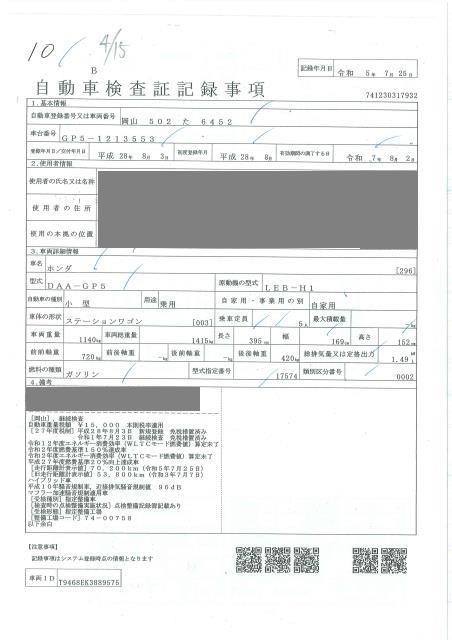 10
4/15
B
記録年月日 令和 5年 7月 25日
自動車検査証記録事項
741230317932
1.基本情報
自動車登録番号又は車両番号 岡山 502 た 6452
車台番号 GP5-1213553
登録年月日/交付年月日 平成 28年 8月 3日 初度登録年月 平成 28年 8月 有効期間の満了する日 令和 7年 8月 2日
2.使用者情報
使用者の氏名又は名称
使用者の住所
使用の本拠の位置
3.車両詳細情報
車名 ホンダ [296]
型式 DAA-GP5 原動機の型式 LEB-H1
自動車の種別 小型 用途 乗用 自家用・事業用の別 自家用
車体の形状 ステーションワゴン [003] 乗車定員 5人 最大積載量 -kg
車両重量 1140kg 車両総重量 1415kg 長さ 395cm 幅 169cm 高さ 152cm
前前軸重 720kg 前後軸重 -kg 後前軸重 -kg 後後軸重 420kg 総排気量又は定格出力 1.49L
燃料の種類 ガソリン 型式指定番号 17574 類別区分番号 0002
4.備考
[岡山], 継続検査
自動車重量税額 ¥15,000 本則税率適用
[27年度税制] 平成28年8月3日 新規登録 免税措置済み
令和1年7月23日 継続検査 免税措置済み
令和12年度エネルギー消費効率(WLTCモード燃費値)算定未了
令和2年度燃費基準150%達成車
令和2年度エネルギー消費効率(WLTCモード燃費値)算定未了
平成27年度燃費基準20%向上達成車
[走行距離計表示値] 70,200km (令和5年7月25日)
[旧走行距離計表示値] 53,800km (令和3年7月7日)
ハイブリッド車
平成10年騒音規制車, 近接排気騒音規制値 96dB
マフラー加速騒音規制適用車
[受検種別] 指定整備車
[検査時の点検整備実施状況] 点検整備記録簿記載あり
[受検形態] 指定整備工場
[整備工場コード] 74-00758
以下余白
[注意事項]
記録事項はシステム登録時点の情報となります
車両ID T9468EK3889575